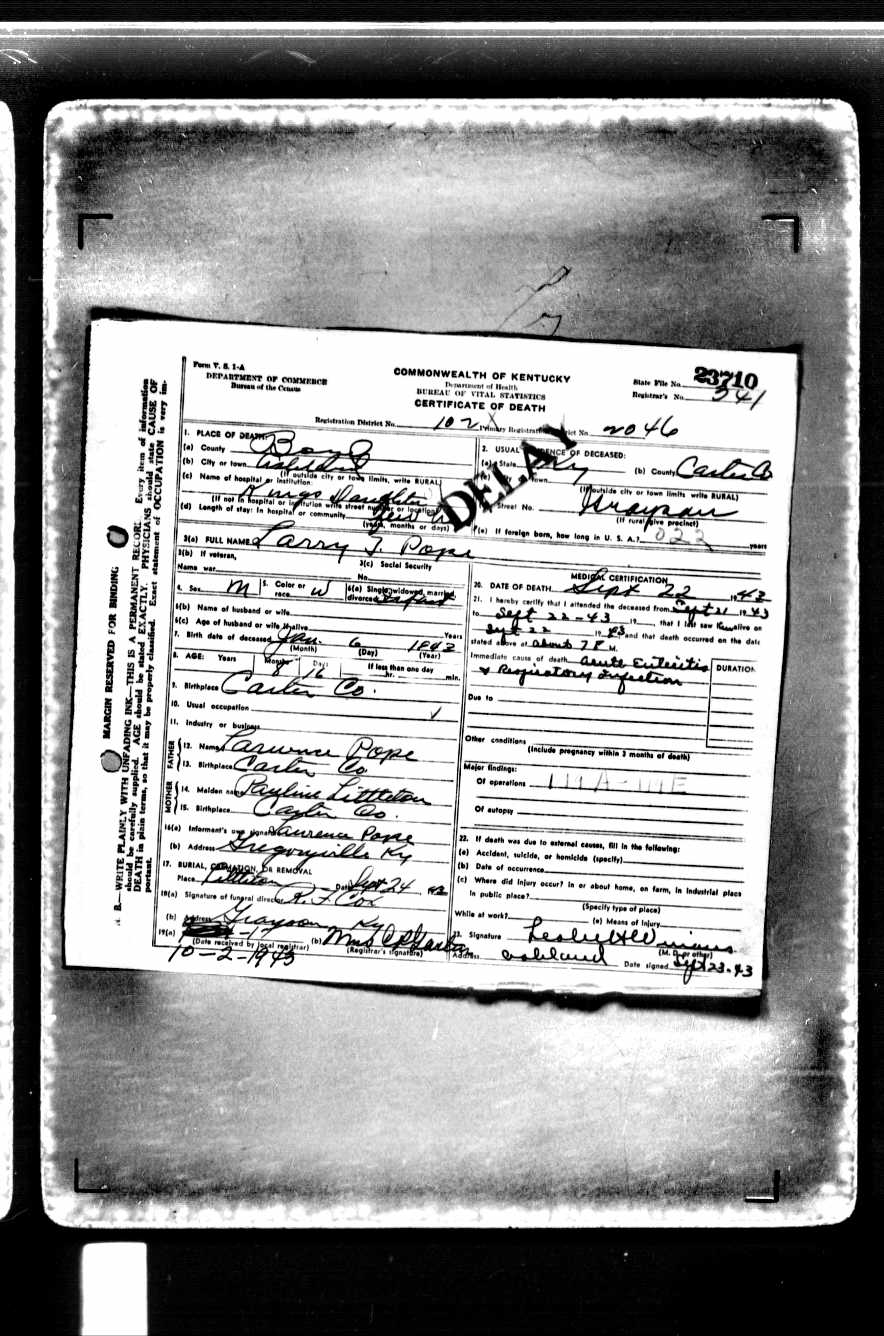 Form V. S. 1-A
DEPARTMENT OF COMMERCE
Bureau of the Census
COMMONWEALTH OF KENTUCKY
Department of Health
BUREAU OF VITAL STATISTICS
CERTIFICATE OF DEATH
State File No. 23710
Registrar's No. 341
Registration District No. 102 Primary Registration District No. 2046
DELAY
MARGIN RESERVED FOR BINDING
N. B.—WRITE PLAINLY WITH UNFADING INK—THIS IS A PERMANENT RECORD. Every item of information
should be carefully supplied. AGE should be stated EXACTLY. PHYSICIANS should state CAUSE OF
DEATH in plain terms, so that it may be properly classified. Exact statement of OCCUPATION is very im-
portant.
1. PLACE OF DEATH:
(a) County Boyd
(b) City or town Ashland
(If outside city or town limits, write RURAL)
(c) Name of hospital or institution:
Kings Daughter
(If not in hospital or institution write street number or location)
(d) Length of stay: In hospital or community
(years, months or days)
2. USUAL RESIDENCE OF DECEASED:
(a) State Ky (b) County Carter Co
(c) City or town
(If outside city or town limits write RURAL)
Street No. Grayson
(If rural give precinct)
(e) If foreign born, how long in U. S. A.? 022 years
3(a) FULL NAME Larry J. Pope
3(b) If veteran,
Name war
3(c) Social Security
No.
4. Sex M 5. Color or race W 6(a) Single, widowed, married, divorced
6(b) Name of husband or wife
6(c) Age of husband or wife if alive Years
7. Birth date of deceased Jan. 6 1943
(Month) (Day) (Year)
8. AGE: Years Months 8 Days 16 If less than one day hr. min.
9. Birthplace Carter Co.
10. Usual occupation ✓
11. Industry or business
FATHER
12. Name Larwence Pope
13. Birthplace Carter Co
MOTHER
14. Maiden name Pauline Littleton
15. Birthplace Carter Co.
16(a) Informant's own signature Laurence Pope
(b) Address Gregoryville Ky
17. BURIAL, CREMATION, OR REMOVAL
Place Date Sept 24 1943
18(a) Signature of funeral director R. F. Cox
(b) Address Grayson Ky
19(a) 10-2-1943
(Date received by local registrar) (b) (Registrar's signature)
MEDICAL CERTIFICATION
20. DATE OF DEATH Sept 22 1943
21. I hereby certify that I attended the deceased from Sept 21 1943
to Sept 22-43 19 , that I last saw him alive on
Sept 22 1943 and that death occurred on the date
stated above at About 7 P M.
Immediate cause of death Acute Enteritis
& Respiratory Infection
DURATION
Due to
Other conditions
(Include pregnancy within 3 months of death)
Major findings:
Of operations 119A-119E
Of autopsy
22. If death was due to external causes, fill in the following:
(a) Accident, suicide, or homicide (specify)
(b) Date of occurrence
(c) Where did injury occur? In or about home, on farm, in industrial place
in public place?
(Specify type of place)
While at work? (e) Means of Injury
23. Signature Leslie H Winans
(M. D. or other)
Address Ashland Date signed Sept 23-43